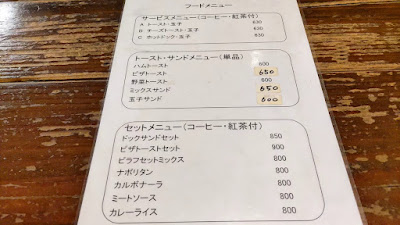 フードメニュー
サービスメニュー(コーヒー・紅茶付)
A トースト・玉子 630
B チーズトースト・玉子 630
C ホットドック・玉子 630
トースト・サンドメニュー(単品)
ハムトースト 600
ピザトースト 650
野菜トースト 600
ミックスサンド 650
玉子サンド 600
セットメニュー(コーヒー・紅茶付)
ドックサンドセット 850
ピザトーストセット 900
ピラフセットミックス 800
ナポリタン 800
カルボナーラ 800
ミートソース 800
カレーライス 800